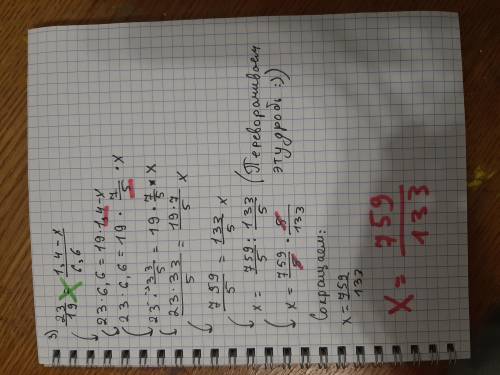 3) 23/19 = 1,4-x/6,6
23·6,6 = 19·1,4-x
23·6,6 = 19 · 7/5 · x
23·33/5 = 19·7/5 x
23·33/5 = 19·7/5 x
759/5 = 133/5 x
x = 759/5 : 133/5 (Переворачиваем
эту дробь :))
x = 759/5 · 5/133
Сокращаем:
x = 759/133
x = 759/133